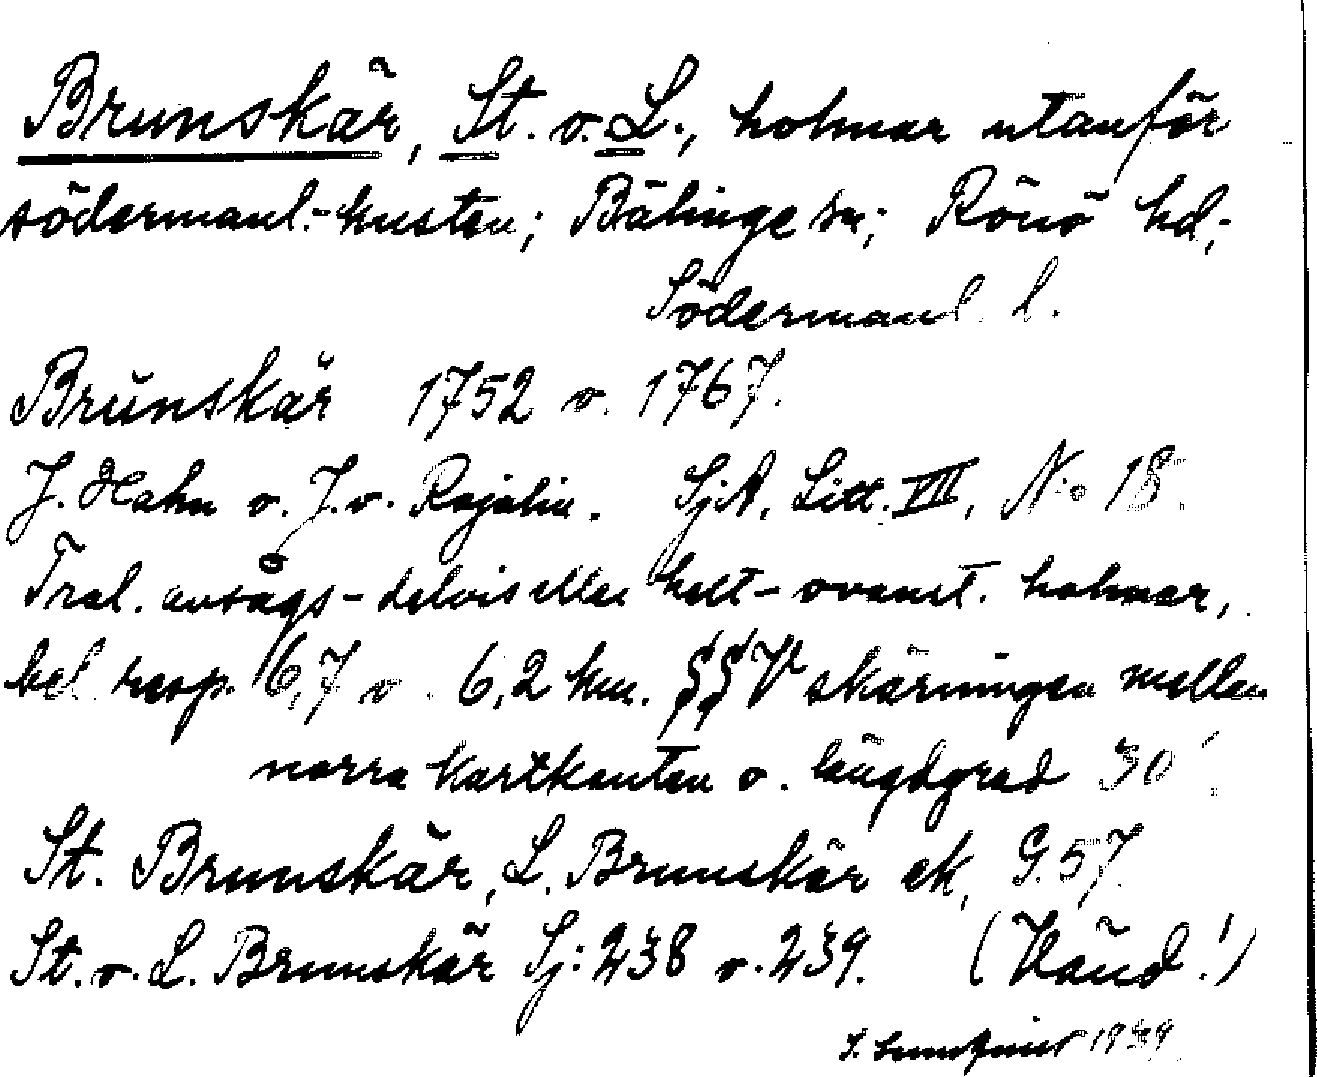 Brunskär, St. o. L., holmar utanför
södermanl.-kusten; Bälinge sn; Rönö hd;
Södermanl. l.
Brŭnskär 1752 o. 1767.
J. Hahn o. J. v. Rajalin. SjA, Litt. VIII, N:o 18.
Tral. avsågs - delvis eller helt - ovanst. holmar,
bel. resp. 6,7 o. 6,2 km. §§V skärningen mellan
norra kartkanten o. längdgrad 30'.
St. Brunskär, L. Brunskär ek, G. 57.
St. o. L. Brunskär Sj: 238 o. 239. (Vänd!)
1939